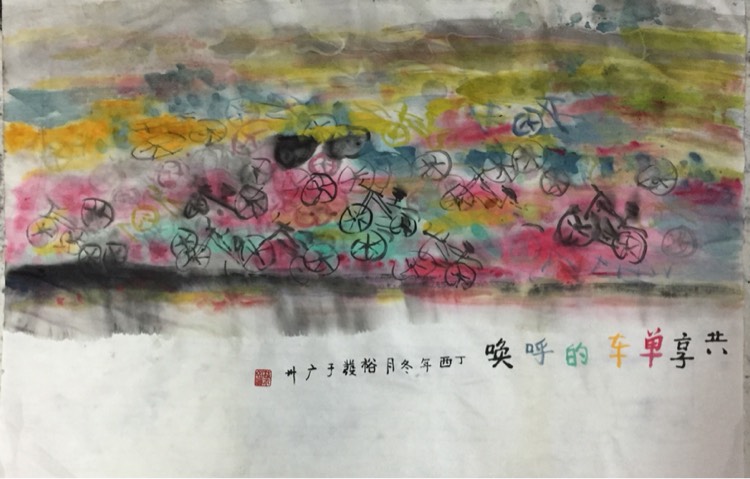 共享单车的呼唤
丁酉年冬月裕于广州